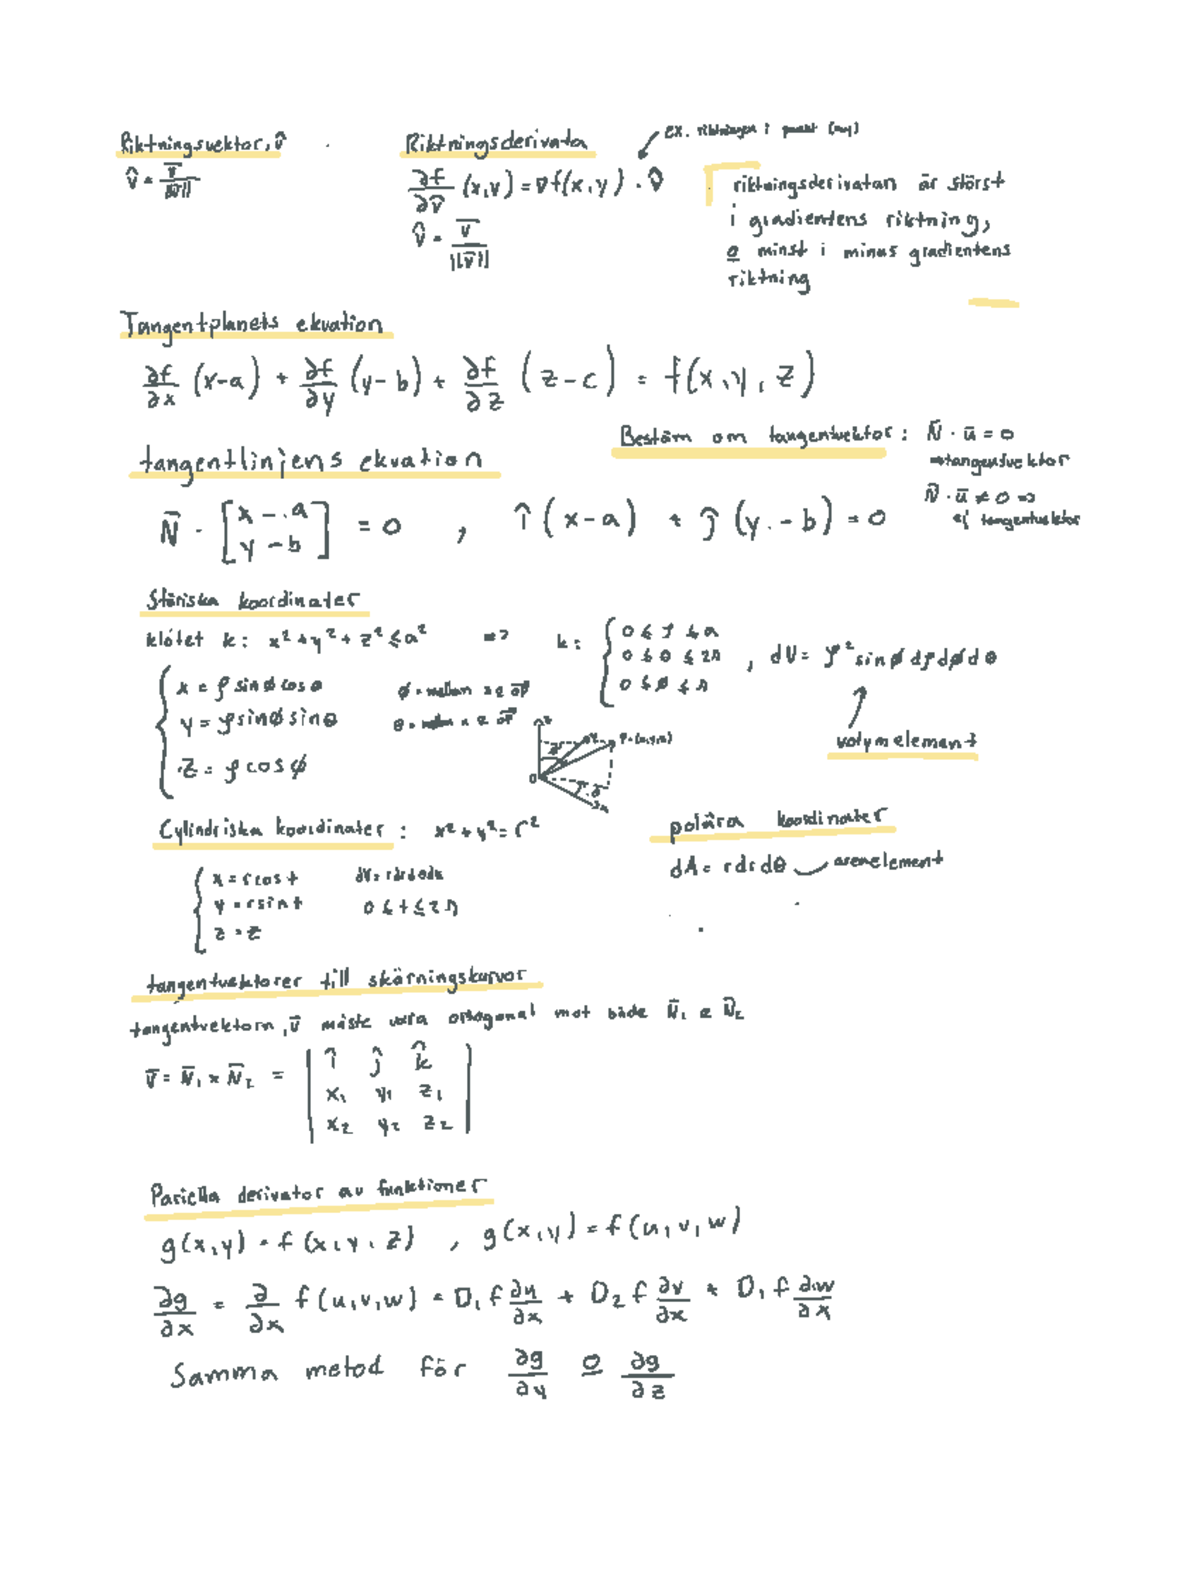 Riktningsvektor, v̂
v̂ = v̄ / ||v̄||
Riktningsderivata
ex. riktningen i punkt (x,y)
∂f/∂v̂ (x,y) = ∇f(x,y) · v̂
v̂ = v̄ / ||v̄||
riktningsderivatan är störst
i gradientens riktning,
o minst i minus gradientens
riktning
Tangentplanets ekvation
∂f/∂x (x-a) + ∂f/∂y (y-b) + ∂f/∂z (z-c) = f(x,y,z)
Bestäm om tangentvektor: N̄ · ū = 0
⇒ tangentvektor
N̄ · ū ≠ 0 ⇒
ej tangentvektor
tangentlinjens ekvation
N̄ · [x-a / y-b] = 0 , î(x-a) + ĵ(y-b) = 0
Sfäriska koordinater
klotet k: x² + y² + z² ≤ a² ⇒ k: { 0 ≤ ρ ≤ a
0 ≤ θ ≤ 2π , dV = ρ² sinϕ dρdϕdθ
0 ≤ ϕ ≤ π
volymelement
{ x = ρ sinϕ cosθ ϕ = mellan z & OP
y = ρ sinϕ sinθ θ = mellan x & OP
z = ρ cosϕ
z
P = (x,y,z)
0
Cylindriska koordinater: x² + y² = r²
{ x = r cos t dV = rdrdθdz
y = r sin t 0 ≤ t ≤ 2π
z = z
polära koordinater
dA = rdrdθ areaelement
tangentvektorer till skärningskurvor
tangentvektorn, v̄ måste vara ortogonal mot både N̄₁ & N̄₂
v̄ = N̄₁ × N̄₂ = | î ĵ k̂ |
x₁ y₁ z₁
x₂ y₂ z₂
Pariella derivator av funktioner
g(x,y) = f(x,y,z) , g(x,y) = f(u,v,w)
∂g/∂x = ∂/∂x f(u,v,w) = D₁f ∂u/∂x + D₂f ∂v/∂x + D₁f ∂w/∂x
Samma metod för ∂g/∂y o ∂g/∂z